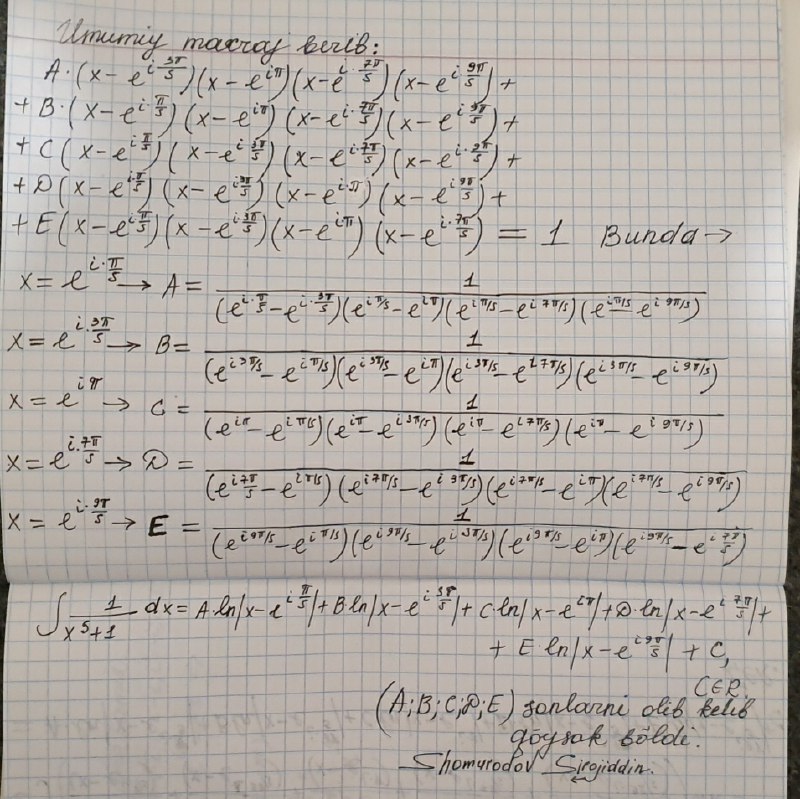 Umumiy maxraj berib:
A·(x-e^{i·3π/5})(x-e^{iπ})(x-e^{i·7π/5})(x-e^{i·9π/5})+
+B·(x-e^{i·π/5})(x-e^{iπ})(x-e^{i·7π/5})(x-e^{i·9π/5})+
+C(x-e^{i·π/5})(x-e^{i·3π/5})(x-e^{i·7π/5})(x-e^{i·9π/5})+
+D(x-e^{i·π/5})(x-e^{i·3π/5})(x-e^{i·π})(x-e^{i·9π/5})+
+E(x-e^{i·π/5})(x-e^{i·3π/5})(x-e^{iπ})(x-e^{i·7π/5}) = 1 Bunda →
x=e^{i·π/5} → A= 1/((e^{i·π/5}-e^{i·3π/5})(e^{iπ/5}-e^{iπ})(e^{iπ/5}-e^{i7π/5})(e^{iπ/5}-e^{i9π/5}))
x=e^{i·3π/5} → B= 1/((e^{i3π/5}-e^{iπ/5})(e^{i3π/5}-e^{iπ})(e^{i3π/5}-e^{i7π/5})(e^{i3π/5}-e^{i9π/5}))
x=e^{iπ} → C= 1/((e^{iπ}-e^{iπ/5})(e^{iπ}-e^{i3π/5})(e^{iπ}-e^{i7π/5})(e^{iπ}-e^{i9π/5}))
x=e^{i·7π/5} → D= 1/((e^{i7π/5}-e^{iπ/5})(e^{i7π/5}-e^{i9π/5})(e^{i7π/5}-e^{iπ})(e^{i7π/5}-e^{i9π/5}))
x=e^{i·9π/5} → E= 1/((e^{i9π/5}-e^{iπ/5})(e^{i9π/5}-e^{i3π/5})(e^{i9π/5}-e^{iπ})(e^{i9π/5}-e^{i7π/5}))
∫ 1/(x^5+1) dx= A·ln|x-e^{iπ/5}|+B·ln|x-e^{i3π/5}|+C·ln|x-e^{iπ}|+D·ln|x-e^{i7π/5}|+
+E·ln|x-e^{i9π/5}|+C,
C∈R.
(A;B;C;D;E) sonlarni olib kelib
qoysak bòldi.
Shomurodov Sirojiddin.